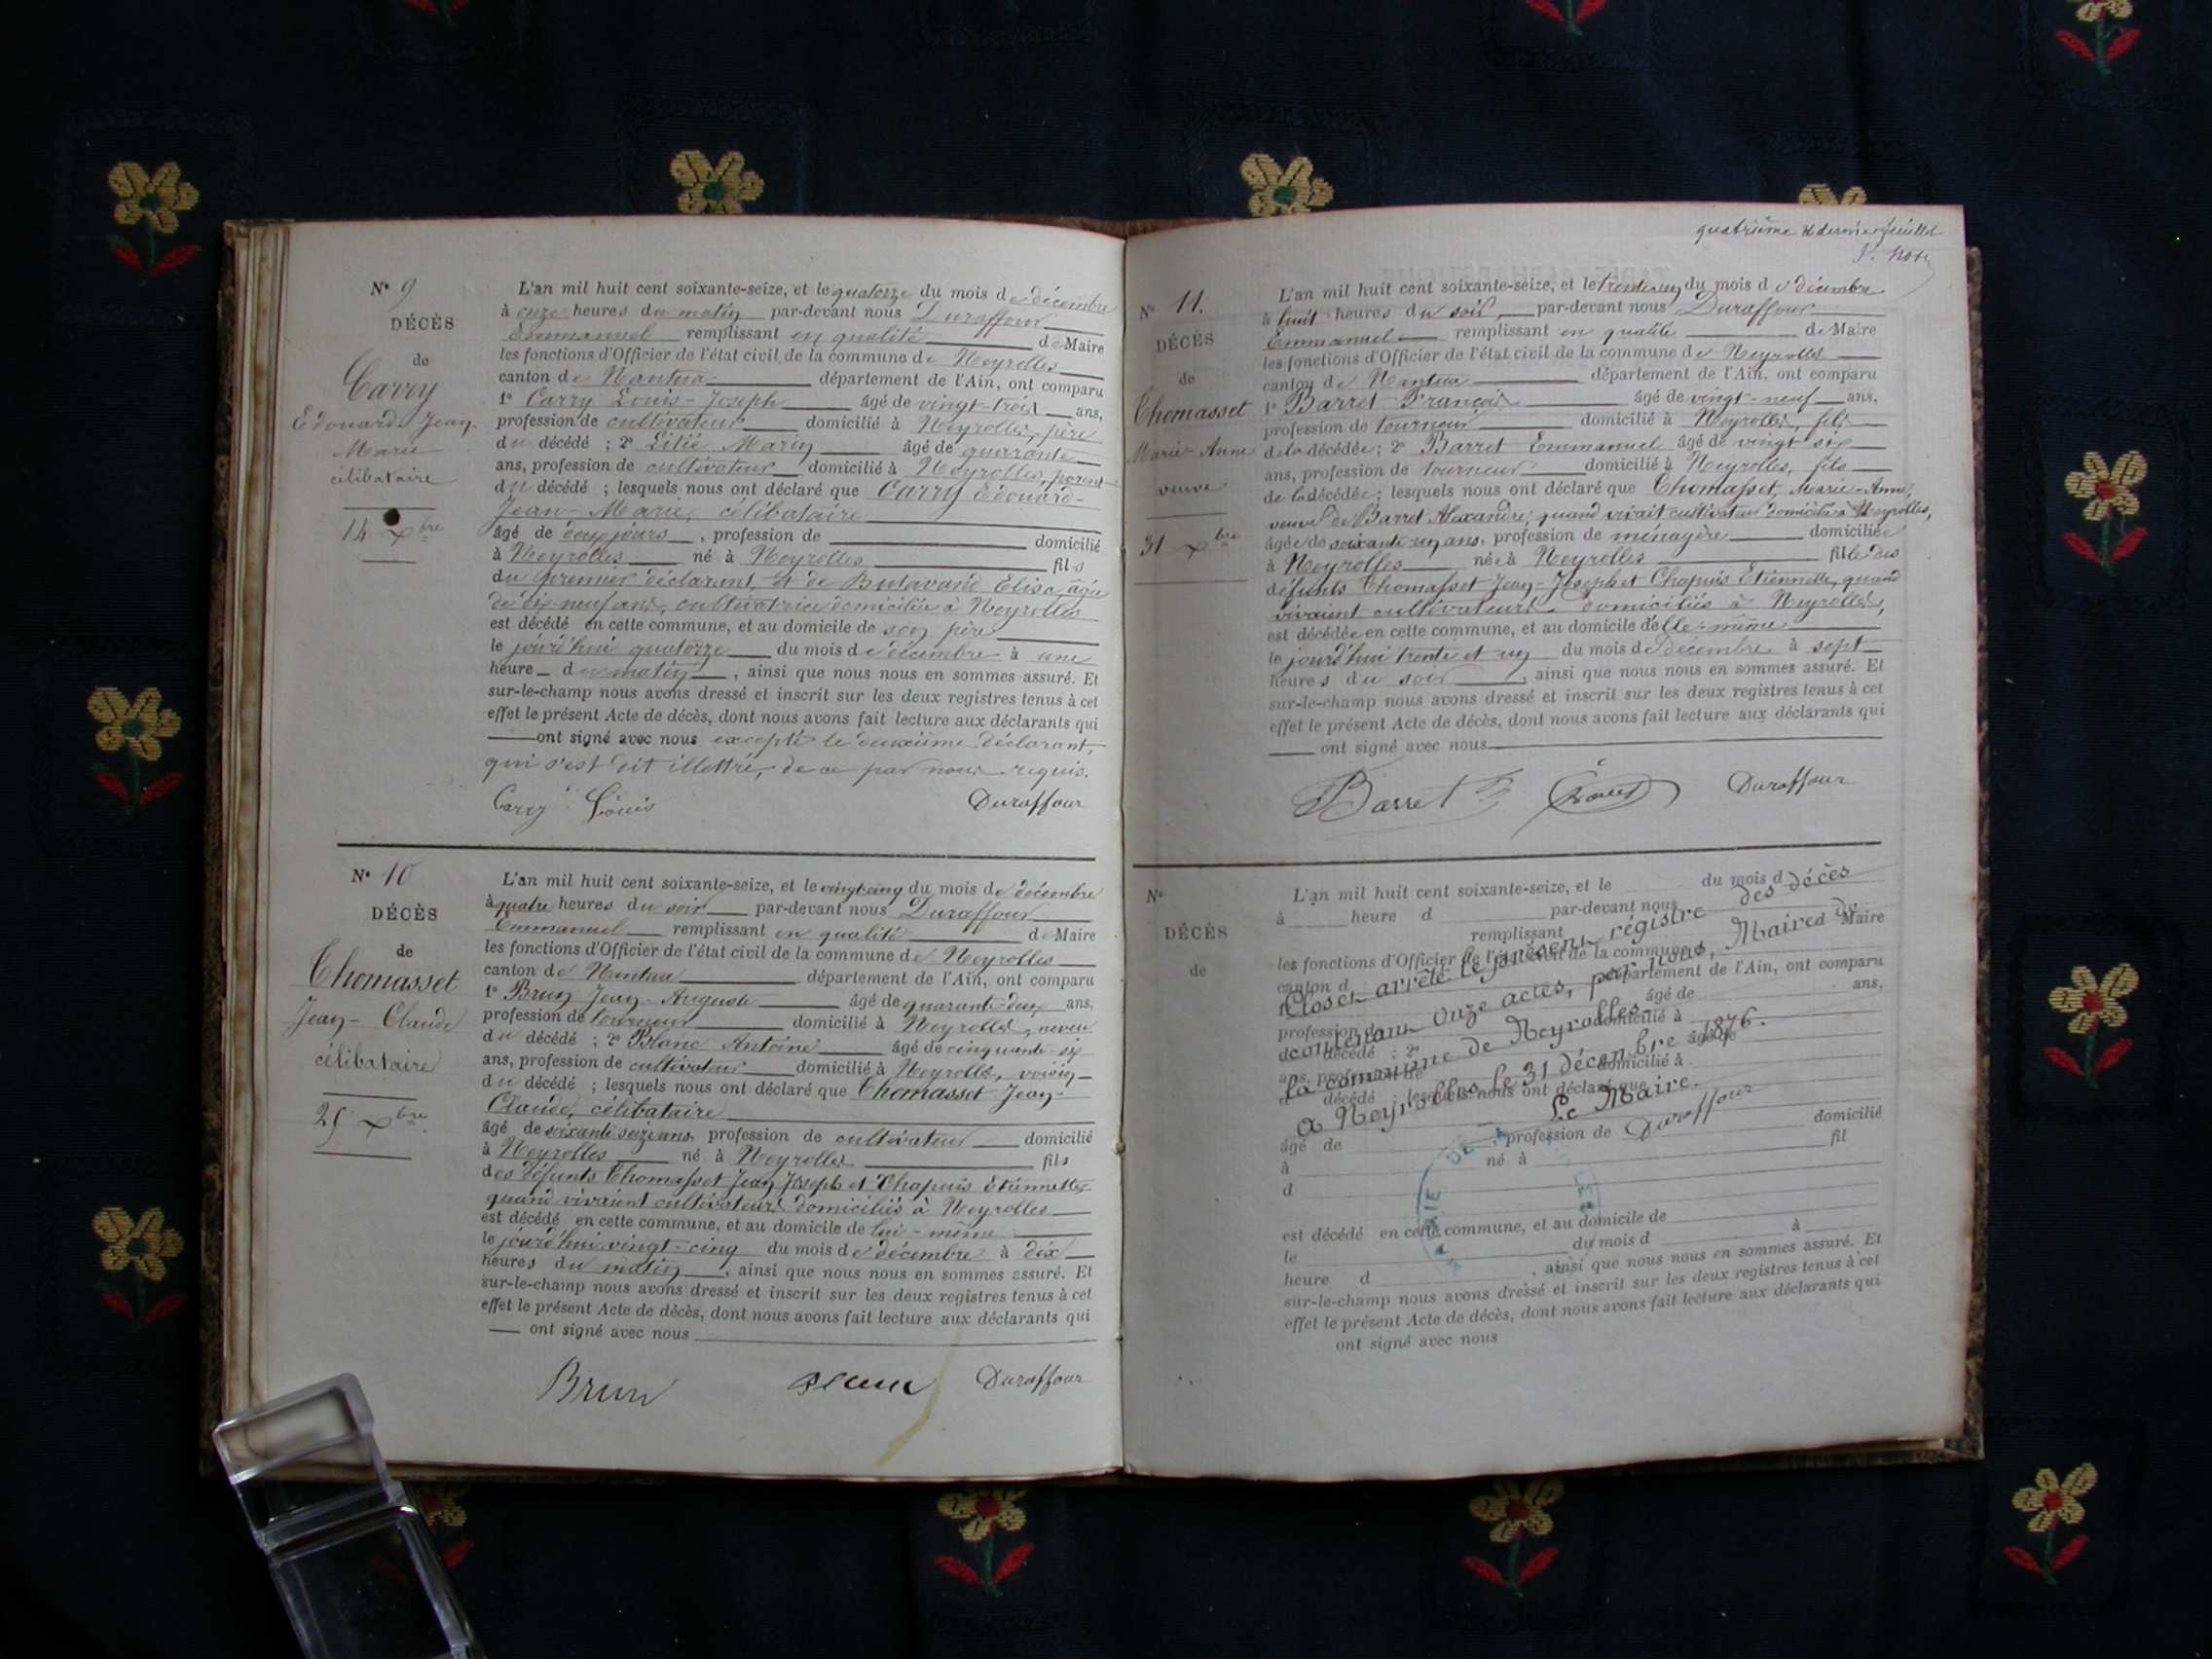 N° 9
DÉCÈS
de
Carry
Edouard-Jean-
Marie
célibataire
14 Xbre
L'an mil huit cent soixante-seize, et le quatorze du mois de décembre
à onze heures du matin par-devant nous Duraffour
Emmanuel remplissant en qualité de Maire
les fonctions d'Officier de l'état civil de la commune de Neyrolles
canton de Nantua département de l'Ain, ont comparu
1° Carry Louis-Joseph âgé de vingt-trois ans,
profession de cultivateur domicilié à Neyrolles, père
du décédé ; 2° Marin âgé de quarante
ans, profession de cultivateur domicilié à Neyrolles, parent
du décédé ; lesquels nous ont déclaré que Carry Edouard-
Jean-Marie, célibataire
âgé de deux jours, profession de domicilié
à Neyrolles né à Neyrolles fils
du premier déclarant et de Butavand Elisa, âgée
de dix-neuf ans, cultivatrice domiciliée à Neyrolles
est décédé en cette commune, et au domicile de son père
le jourd'hui quatorze du mois de décembre à une
heure du matin, ainsi que nous nous en sommes assuré. Et
sur-le-champ nous avons dressé et inscrit sur les deux registres tenus à cet
effet le présent Acte de décès, dont nous avons fait lecture aux déclarants qui
ont signé avec nous excepté le deuxième déclarant,
qui s'est dit illettré, de ce par nous requis.
Carry Louis Duraffour
N° 10
DÉCÈS
de
Thomasset
Jean-Claude
célibataire
25 Xbre
L'an mil huit cent soixante-seize, et le vingt-cinq du mois de décembre
à quatre heures du soir par-devant nous Duraffour
Emmanuel remplissant en qualité de Maire
les fonctions d'Officier de l'état civil de la commune de Neyrolles
canton de Nantua département de l'Ain, ont comparu
1° Brun Jean-Auguste âgé de quarante-deux ans,
profession de tourneur domicilié à Neyrolles, neveu
du décédé ; 2° Blanc Antoine âgé de cinquante-six
ans, profession de cultivateur domicilié à Neyrolles, voisin
du décédé ; lesquels nous ont déclaré que Thomasset Jean-
Claude, célibataire
âgé de soixante seize ans, profession de cultivateur domicilié
à Neyrolles né à Neyrolles fils
des défunts Thomasset Jean Joseph et Chapuis Etiennette
quand vivaient cultivateurs domiciliés à Neyrolles
est décédé en cette commune, et au domicile de lui-même
le jourd'hui vingt-cinq du mois de décembre à dix
heures du matin, ainsi que nous nous en sommes assuré. Et
sur-le-champ nous avons dressé et inscrit sur les deux registres tenus à cet
effet le présent Acte de décès, dont nous avons fait lecture aux déclarants qui
ont signé avec nous
Brun Blanc Duraffour
quatrième & dernier feuillet
N° 11.
DÉCÈS
de
Thomasset
Marie-Anne
veuve
31 Xbre
L'an mil huit cent soixante-seize, et le trente-un du mois de décembre
à huit heures du soir, par-devant nous Duraffour
Emmanuel remplissant en qualité de Maire
les fonctions d'Officier de l'état civil de la commune de Neyrolles
canton de Nantua département de l'Ain, ont comparu
1° Barret François âgé de vingt-neuf ans,
profession de tourneur domicilié à Neyrolles, fils
de la décédée ; 2° Barret Emmanuel âgé de vingt six
ans, profession de tourneur domicilié à Neyrolles, fils
de la décédée ; lesquels nous ont déclaré que Thomasset, Marie-Anne,
veuve de Barret Alexandre, quand vivait cultivateur domicilié à Neyrolles,
âgée de soixante un ans, profession de ménagère domiciliée
à Neyrolles née à Neyrolles fille des
défunts Thomasset Jean-Joseph et Chapuis Etiennette, quand
vivaient cultivateurs domiciliés à Neyrolles,
est décédée en cette commune, et au domicile d'elle-même
le jourd'hui trente et un du mois de décembre à sept
heures du soir, ainsi que nous nous en sommes assuré. Et
sur-le-champ nous avons dressé et inscrit sur les deux registres tenus à cet
effet le présent Acte de décès, dont nous avons fait lecture aux déclarants qui
ont signé avec nous
Barret Duraffour
N°
DÉCÈS
de
L'an mil huit cent soixante-seize, et le du mois d
à heure d par-devant nous
remplissant de Maire
les fonctions d'Officier de l'état civil de la commune d
canton d département de l'Ain, ont comparu
âgé de ans,
profession de domicilié à
d décédé ; 2° âgé de
ans, profession de domicilié à
d décédé ; lesquels nous ont déclaré que
âgé de , profession de domicilié
à né à fil
d
est décédé en cette commune, et au domicile de
le du mois d à
heure d , ainsi que nous nous en sommes assuré. Et
sur-le-champ nous avons dressé et inscrit sur les deux registres tenus à cet
effet le présent Acte de décès, dont nous avons fait lecture aux déclarants qui
ont signé avec nous
Clos et arrêté le présent régistre des décès
contenant onze actes, par nous, Maire de
la commune de Neyrolles.
a Neyrolles le 31 décembre 1876.
Le Maire.
Duraffour